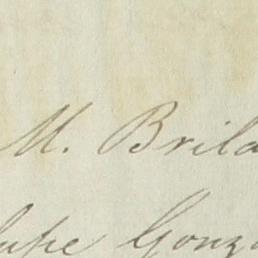 M. Brila
lupe Gonza